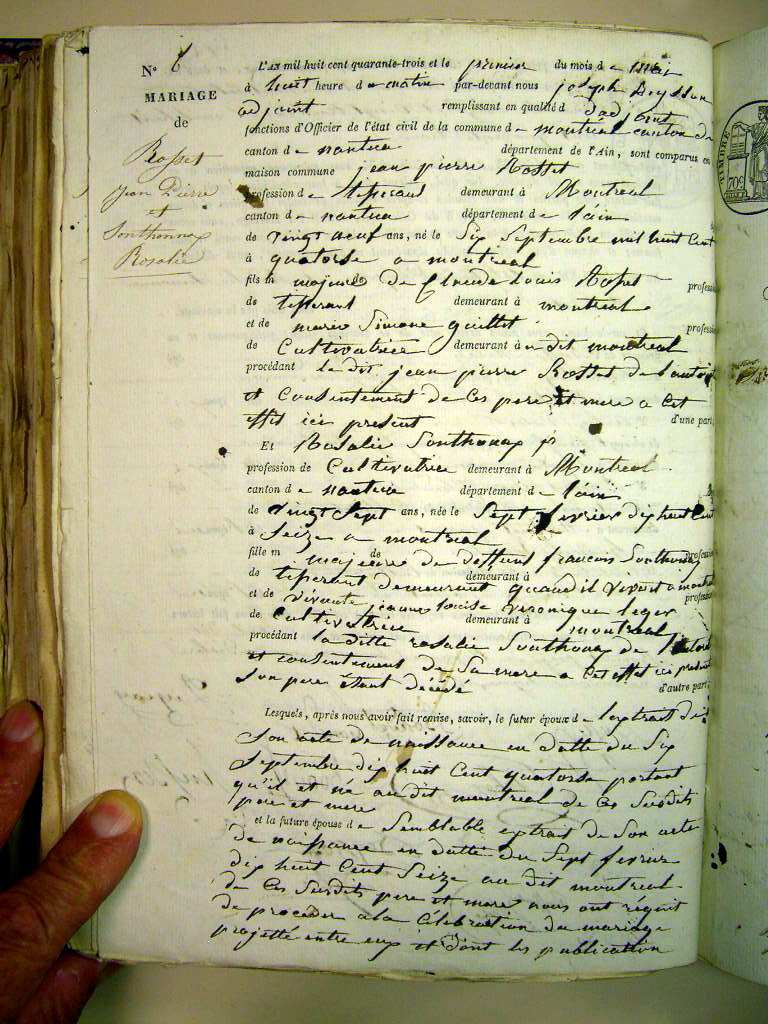 N° 6
MARIAGE
de
Rosset
Jean Pierre
et
Sonthonnax
Rosalie
L'AN mil huit cent quarante-trois et le premier du mois de mai
à huit heure de matin par-devant nous joseph
adjoint remplissant en qualité d d'adjoint
fonctions d'Officier de l'état civil de la commune de montréal canton de
canton de nantua département de l'Ain, sont comparus en
maison commune jean pierre Rosset
profession de tisserand demeurant à Montreal
canton de nantua département de l'ain
de vingt neuf ans, né le Six Septembre mil huit Cent
à quatorse a montreal
fils m majeur de de Claude Louis Rosset professi
de tisserant demeurant à montreal
et de marie Simone guillet professi
de Cultivatrice demeurant à u dit montreal
procédant le dit jean pierre Rosset de l'autori
et Consentement de Ces pere et mere a Cet
effet ici present d'une part,
Et Rosalie Sonthonax
profession de Cultivatrice demeurant à Montreal
canton de nantua département de l'ain
de vingt Sept ans, née le Sept fevrier dix huit Cent
à Seize a montreal
fille m majeure de de deffunt francois Sonthonax profession
de tiserant demeurant demeurant à quand il vivoit a montreal
et de vivante jeanne louise veronique leger profession
de Cultivatrice demeurant à montreal
procédant la ditte rosalie Sonthonax de
et consentement de Sa mere a Cet effet ici
Son pere étant décédé d'autre part;
Lesquels, après nous avoir fait remise, savoir, le futur époux d e l'extrait de
Son acte de naissance en datte du Six
Septembre dix huit Cent quatorse portant
qu'il et né au dit montreal de Ces Susdits
pere et mere
et la future épouse d e Semblable extrait de Son acte
de naissance en datte du Sept fevrier
dix huit Cent Seize au dit montreal
de Ces Susdits pere et mere nous ont réquit
de proceder a la Célébration du mariage
projetté entre eux et dont les publication
TIMBRE